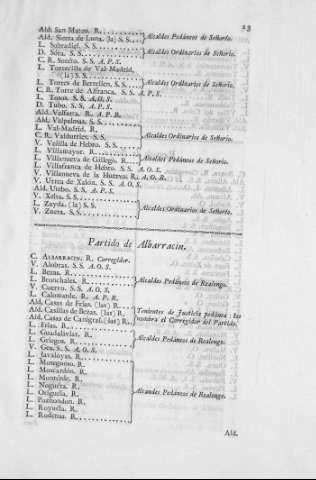 23
Ald. San Mateo. R.
Ald. Sierra de Luna. (la) S. S. Alcaldes Pedáneos de Señorío.
L. Sobradiel. S. S.
D. Sora. S. S. Alcaldes Ordinarios de Señorío.
C. R. Sotero. S. S. A. P. S.
L. Torrecilla de Val-Madrid.
(la) S. S.
L. Torres de Berrellen. S. S. Alcaldes Ordinarios de Señorío.
C. R. Torre de Affranca. S. S. A. P. S.
L. S. S. A. O. S.
D. Tubo. S. S. A. P. S.
Ald. Valfarta. R. A. P. R.
Ald. Valpalmas. S. S.
L. Val-Madrid. R.
C. R. Valdurrios. S. S. Alcaldes Ordinarios de Señorío.
V. Velilla de Hebro. S. S.
L. Villamayor. R.
L. Villanueva de Gállego. R. Alcaldes Pedáneos de Señorío.
L. Villafranca de Hebro. S. S. A. O. S.
V. Villanueva de la Huerva. R. A. O. R.
V. Urrea de Xalón. S. S. A. O. S.
Ald. Utebo. S. S. A. P. S.
V. Xelsa. S. S.
L. Zayda. (la) S. S. Alcaldes Ordinarios de Señorío.
V. Zuera. S. S.
Partido de Albarracin.
C. ALBARRACIN. R. Corregidor.
V. Alobras. S. S. A. O. S.
L. Bezas. R.
L. Bronchales. R. Alcaldes Pedáneos de Realengo.
V. Cuervo. S. S. A. O. S.
L. Calomarde. R. A. P. R.
Ald. Casas de Frias. (las) R.
Ald. Casillas de Bezas. (las) R. Tenientes de Justicia pedánea: los
Ald. Casas de (las) R. nombra el Corregidor del Partido.
L. Frias. R.
L. Guadalaviar. R.
L. Griegos. R. Alcaldes Pedáneos de Realengo.
V. Gea. S. S. A. O. S.
L. Javaloyas. R.
L. Monegono. R.
L. Moscardón. R.
L. Monterde. R.
L. Noguera. R.
L. Origuela. R. Alcaldes Pedáneos de Realengo.
L. Pozhondon. R.
L. Royuela. R.
L. Rodenas. R.
Ald.